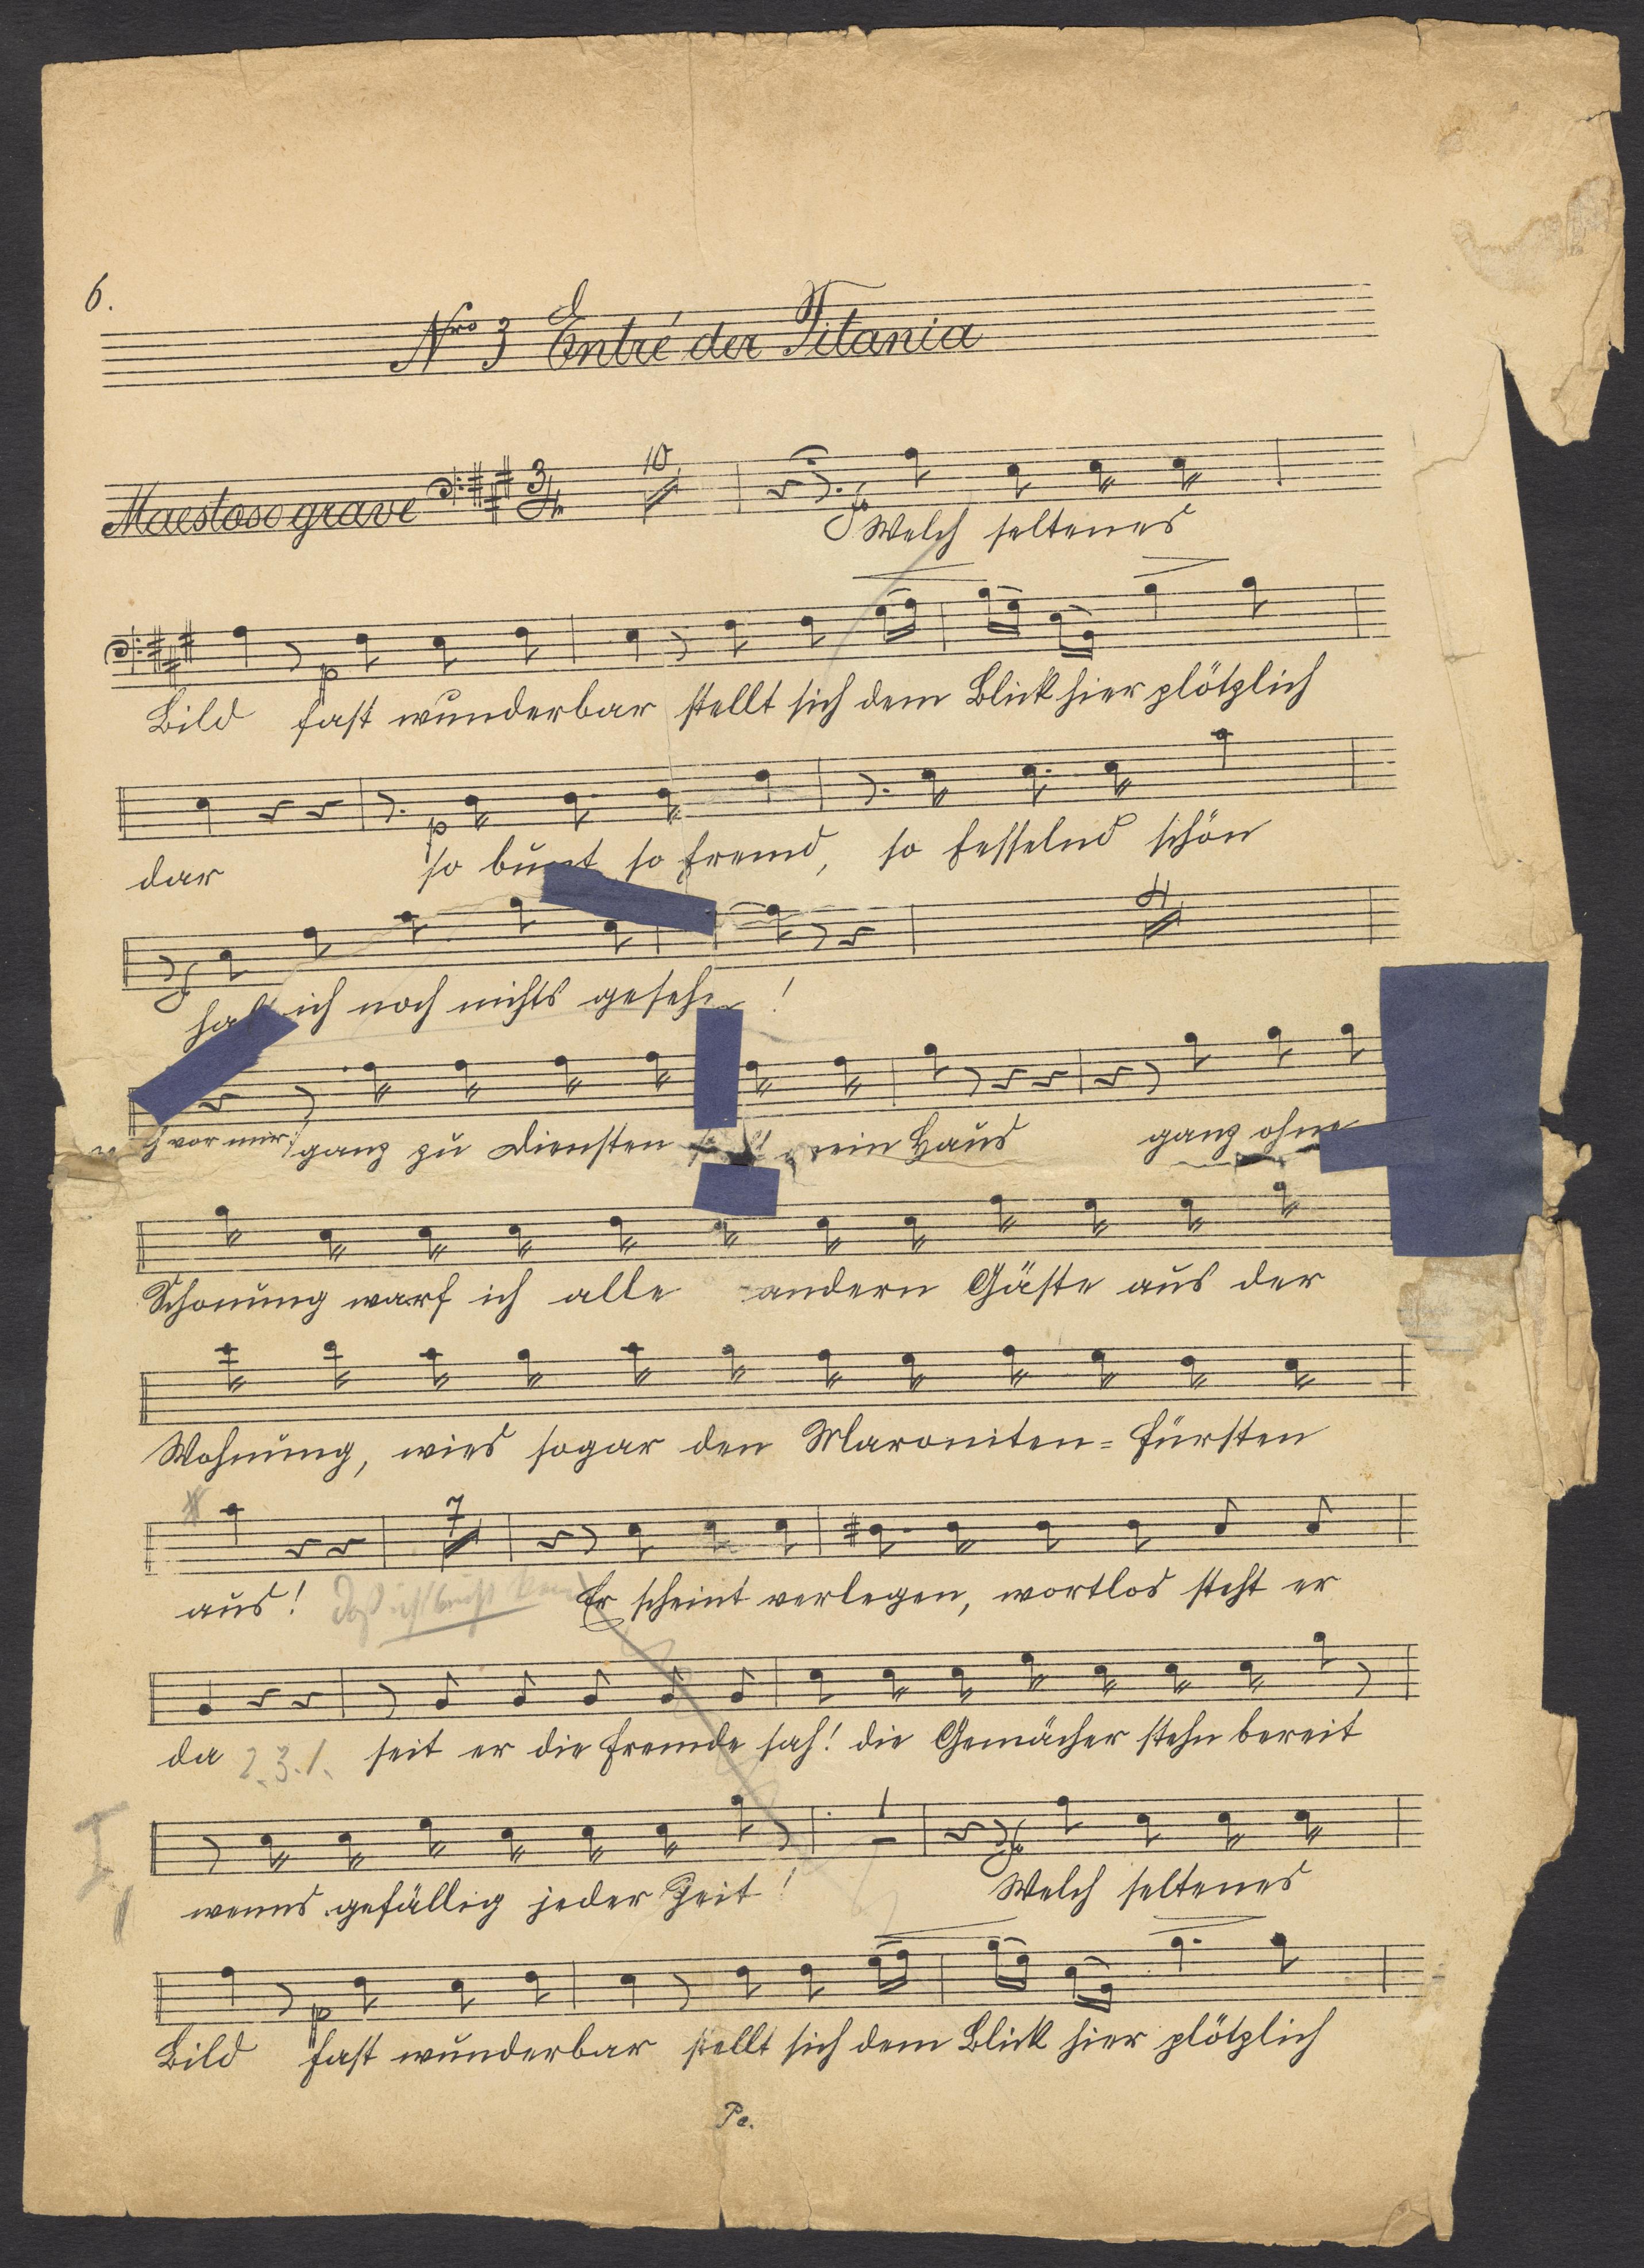 6.
Nro 3 Entré der Titania
Maestoso grave 3/4 10
Welch seltenes
Bild fast wunderbar stellt sich dem Blick hier plötzlich
p
dar so bunt so fremd, so fesselnd schön
p
4
hab ich noch nichts gesehn!
vor mir: ganz zu Diensten mein Haus ganz ohne
Schonung warf ich alle andern Gäste aus der
Wohnung, wies sogar den Maroniten=fürsten
7
aus! Er scheint verlegen, wortlos steht er
da 2. 3. 1. seit er die Fremde sah! die Gemächer stehn bereit
1
wenns gefällig jeder Zeit! Welch seltenes
p
Bild fast wunderbar stellt sich dem Blick hier plötzlich
Pe.